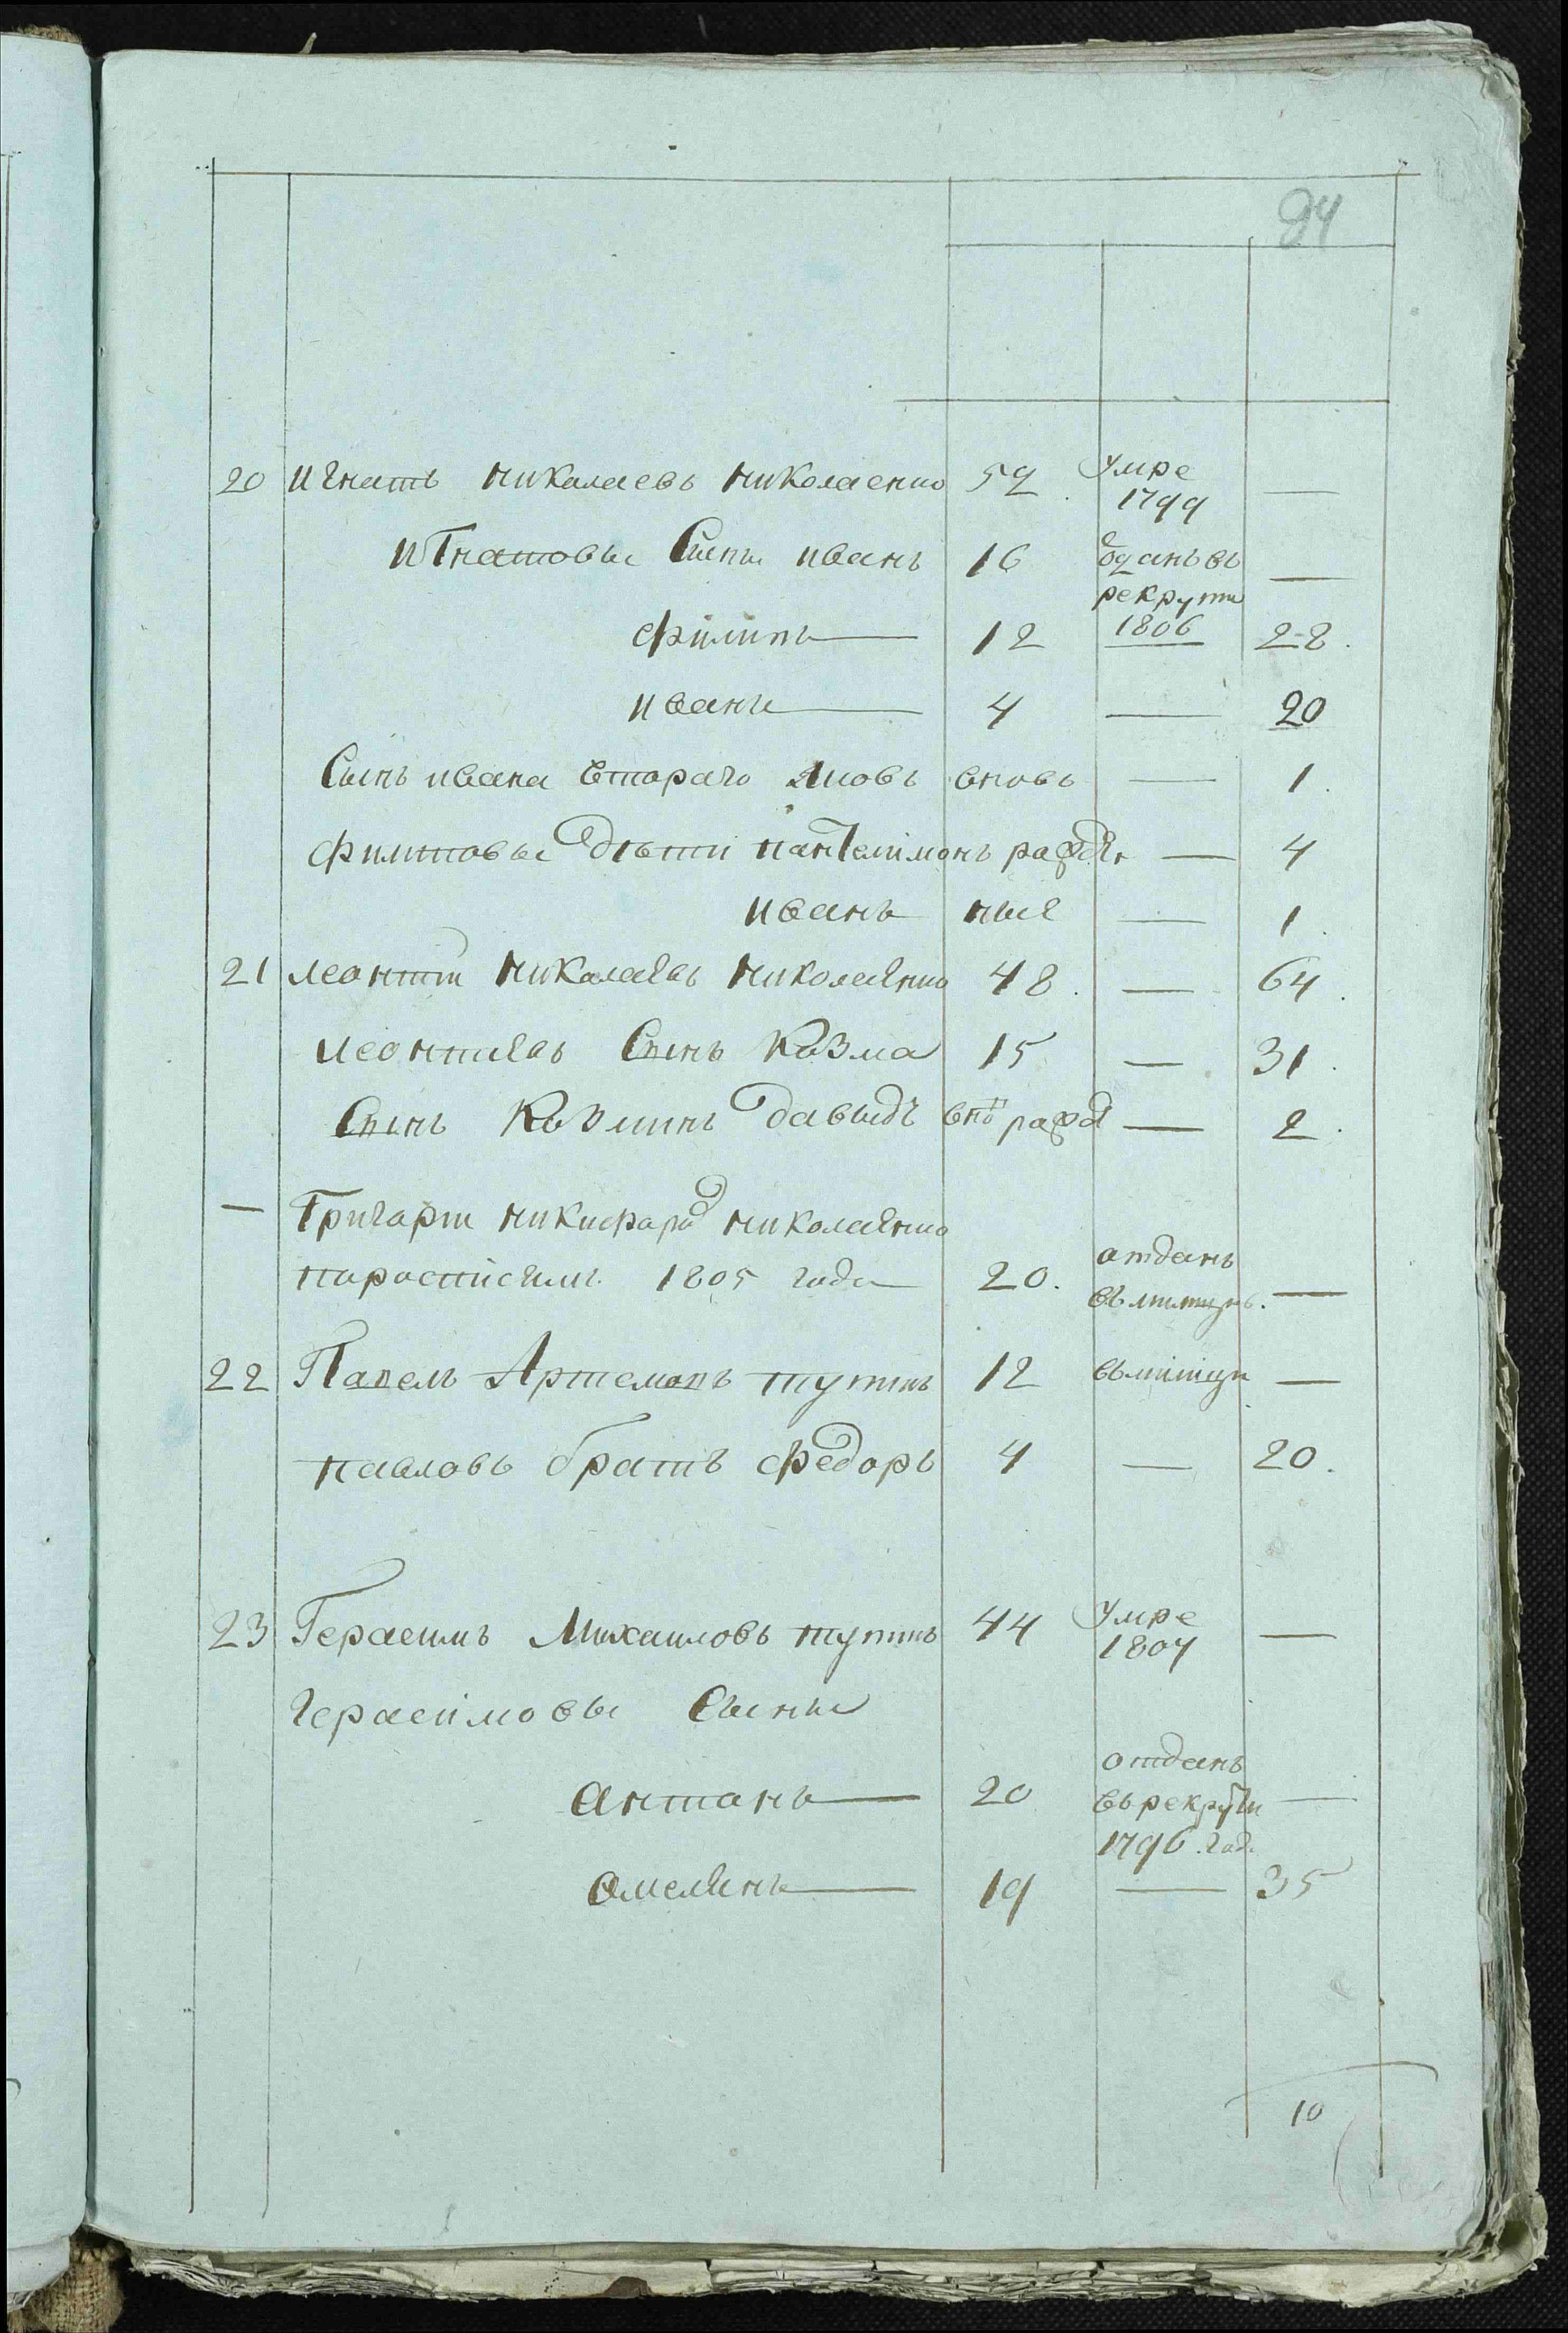 94
20 Игнатъ Николаевъ Николаенко 52 Умре 1799 —
Игнатовы Сыны иванъ 16 оданъ въ рекруты 1806 —
Филипъ 12 28
иванъ 4 — 20
Сынъ ивана второго Яковъ вновь — 1
Филиповы дѣти пантелимонъ рожде — 4
иванъ ные — 1
21 леонтий Николаевъ Николаенко 48 — 64
леонтиевъ Сынъ Козма 15 — 31
Сынъ Козминъ давыдъ внo рожд — 2
— Григорий никифоро николаенко
поросписямъ 1805 года 20. отданъ въ милицию. —
22 Павелъ Артемовъ 12 въ милици —
павловъ братъ федоръ 4 — 20.
23 Герасимъ Михаиловъ 44 Умре 1804 —
герасимовы Сыны
антонъ 20 отданъ въ рекруты 1796 год. —
омелянъ 19 — 35
10